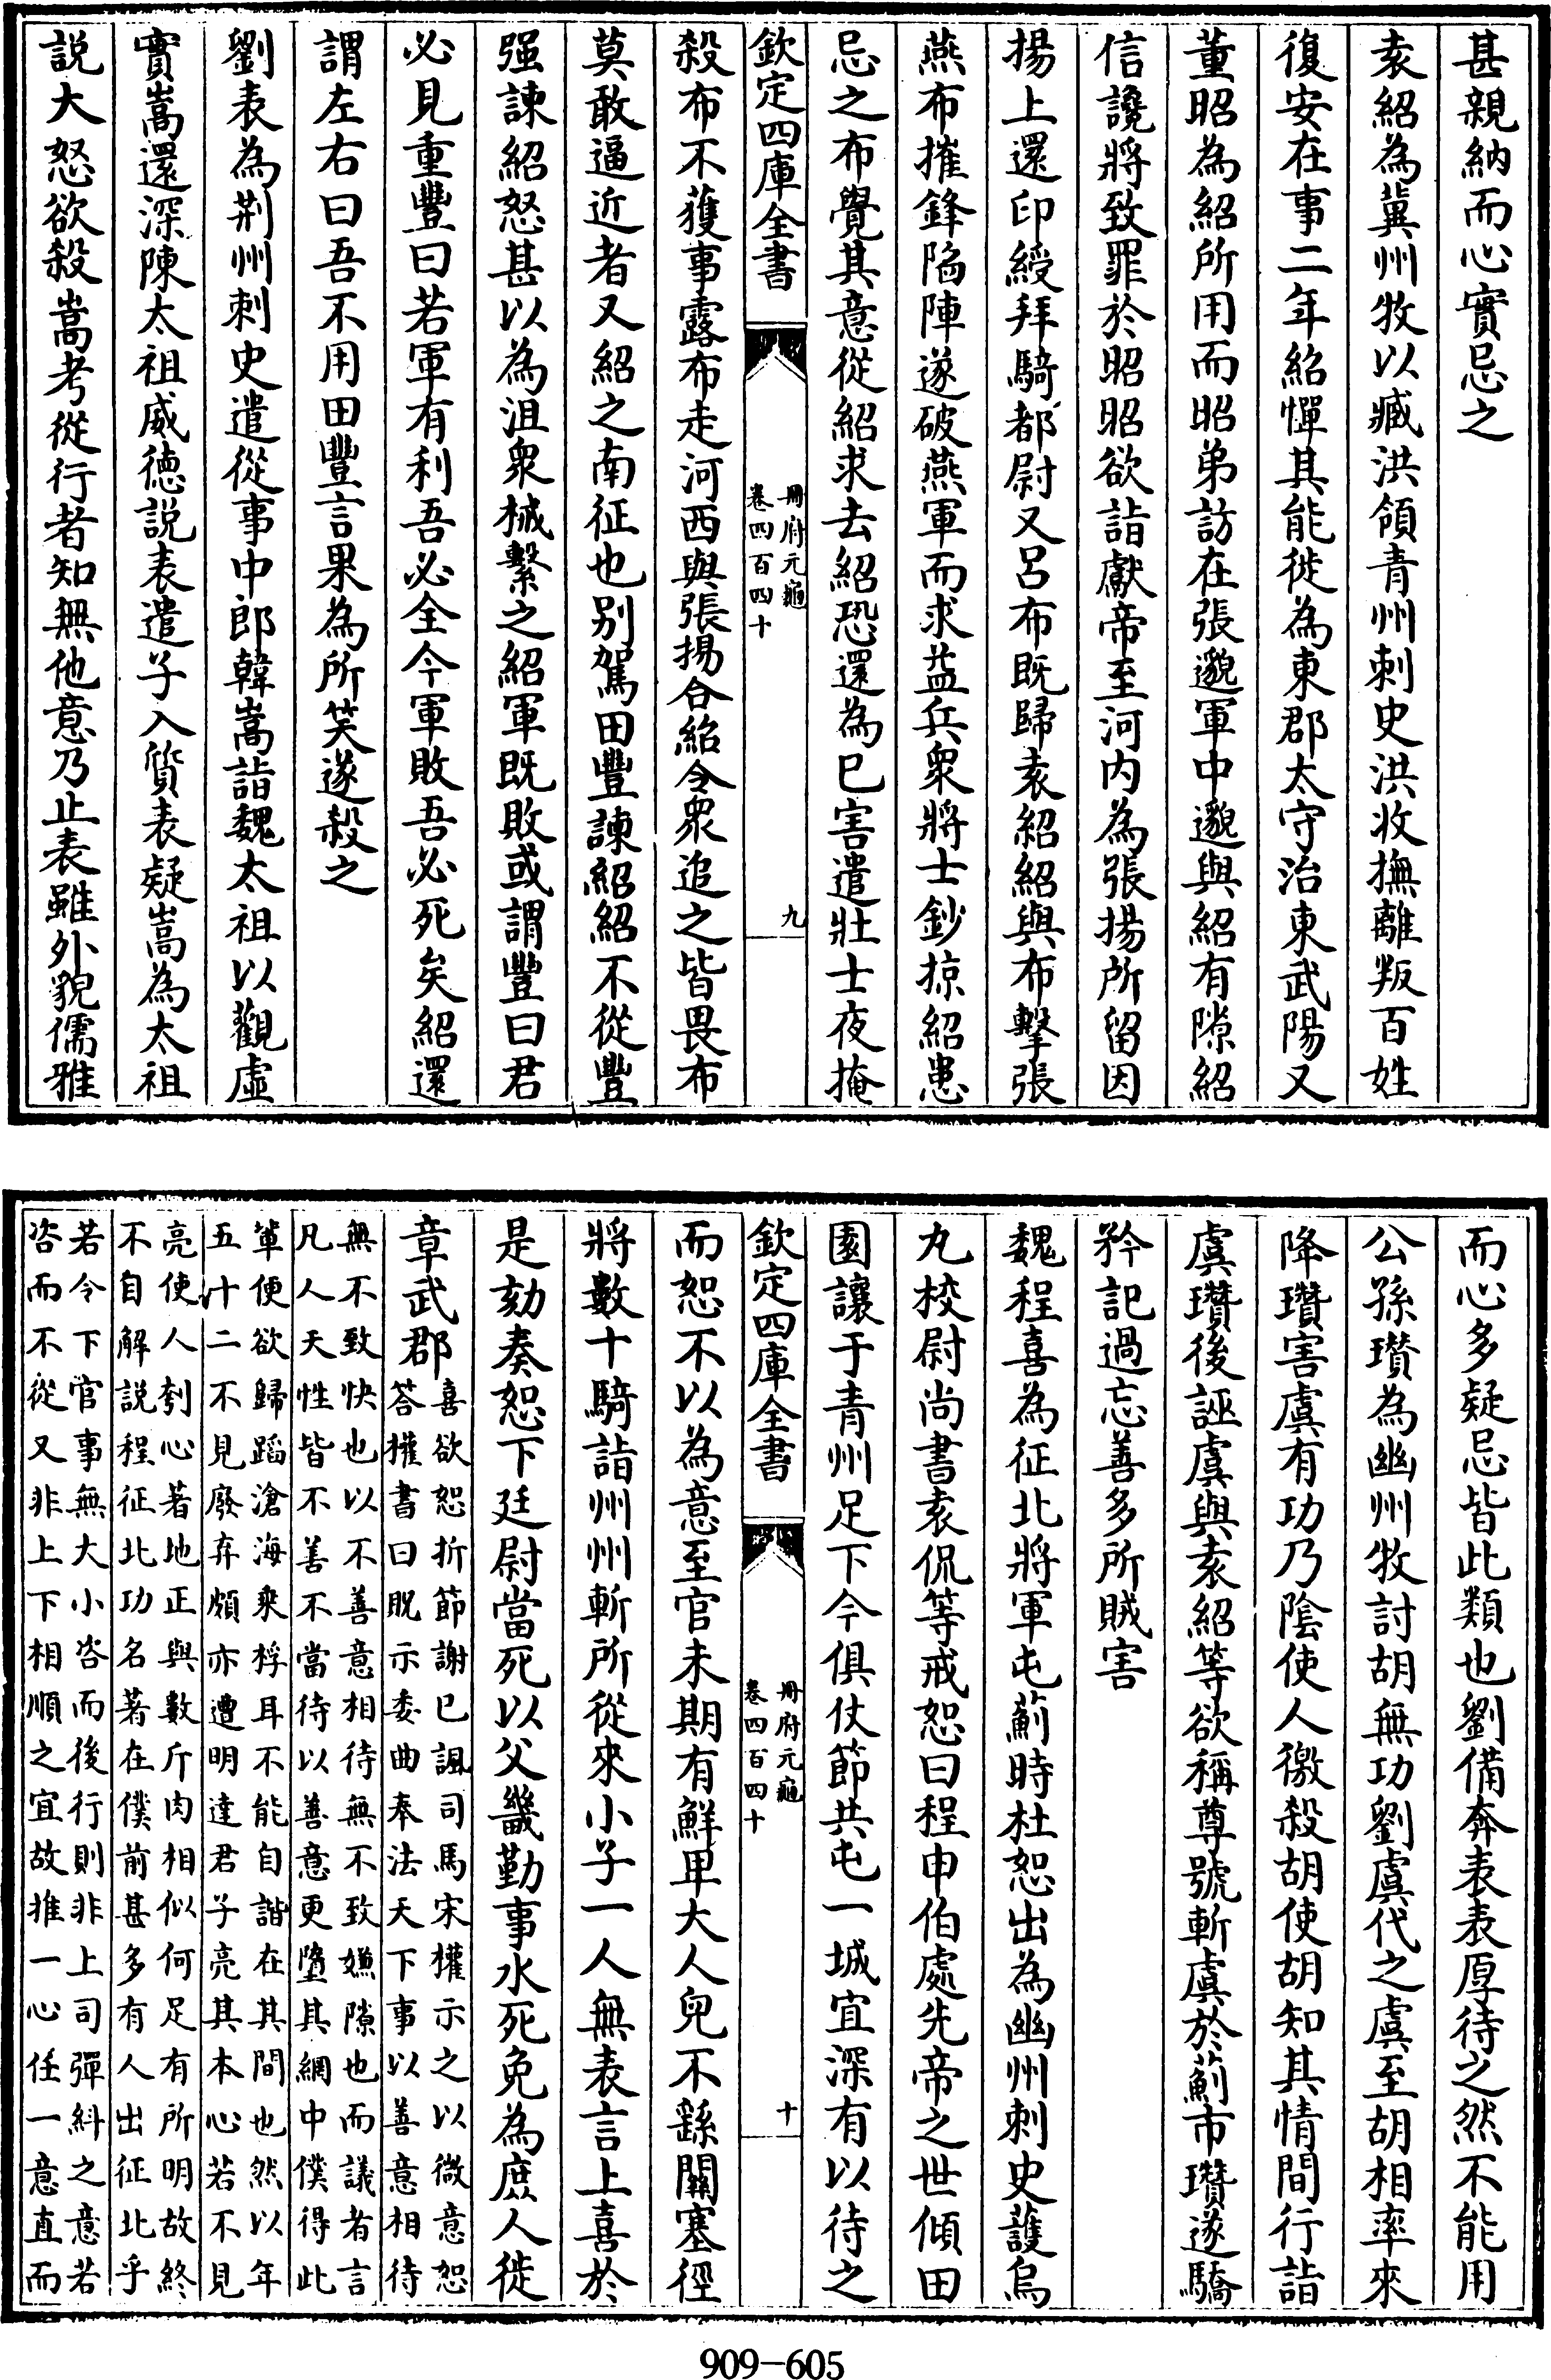 甚親納而心實忌之
袁紹為冀州牧以臧洪領青州刺史洪收撫離叛百姓
復安在事二年紹憚其能徙為東郡太守治東武陽又
董昭為紹所用而昭弟訪在張邈軍中邈與紹有隙紹
信讒將致罪於昭昭欲詣獻帝至河内為張揚所留因
揚上還印綬拜騎都尉又呂布既歸袁紹紹與布擊張
燕布摧鋒陷陣遂破燕軍而求益兵衆將士鈔掠紹患
忌之布覺其意從紹求去紹恐還為已害遣壯士夜掩
欽定四庫全書
冊府元龜
卷四百四十
九
殺布不獲事露布走河西與張揚合紹令衆追之皆畏布
莫敢逼近者又紹之南征也别駕田豐諫紹紹不從豐
强諫紹怒甚以為沮衆械繫之紹軍既敗或謂豐曰君
必見重豐曰若軍有利吾必全今軍敗吾必死矣紹還
謂左右曰吾不用田豐言果為所笑遂殺之
劉表為荆州刺史遣從事中郎韓嵩詣魏太祖以觀虛
實嵩還深陳太祖威德説表遣子入質表疑嵩為太祖
説大怒欲殺嵩考從行者知無他意乃止表雖外貌儒雅
而心多疑忌皆此類也劉備奔表表厚待之然不能用
公孫瓚為幽州牧討胡無功劉虞代之虞至胡相率來
降瓚害虞有功乃陰使人徼殺胡使胡知其情間行詣
虞瓚後誣虞與袁紹等欲稱尊號斬虞於薊市瓚遂驕
矜記過忘善多所賊害
魏程喜為征北將軍屯薊時杜恕出為幽州刺史護烏
丸校尉尚書袁侃等戒恕曰程申伯處先帝之世傾田
園讓于青州足下今俱仗節共屯一城宜深有以待之
欽定四庫全書
冊府元龜
卷四百四十
十
而恕不以為意至官未期有鮮卑大人兒不繇關塞徑
將數十騎詣州州斬所從來小子一人無表言上喜於
是劾奏恕下廷尉當死以父畿勤事水死免為庶人徙
章武郡
喜欲恕折節謝已諷司馬宋權示之以微意恕
荅權書曰貺示委曲奉法天下事以善意相待
無不致快也以不善意相待無不致嫌隙也而議者言
凡人天性皆不善不當待以善意更墮其網中僕得此
軰便欲歸蹈滄海乘桴耳不能自諧在其間也然以年
五十二不見廢弃頗亦遭明達君子亮其本心若不見
亮使人刳心著地正與數斤肉相似何足有所明故終
不自解説程征北功名著在僕前甚多有人出征北乎
若令下官事無大小咨而後行則非上司彈糾之意若
咨而不從又非上下相順之宜故推一心任一意直而
909-605